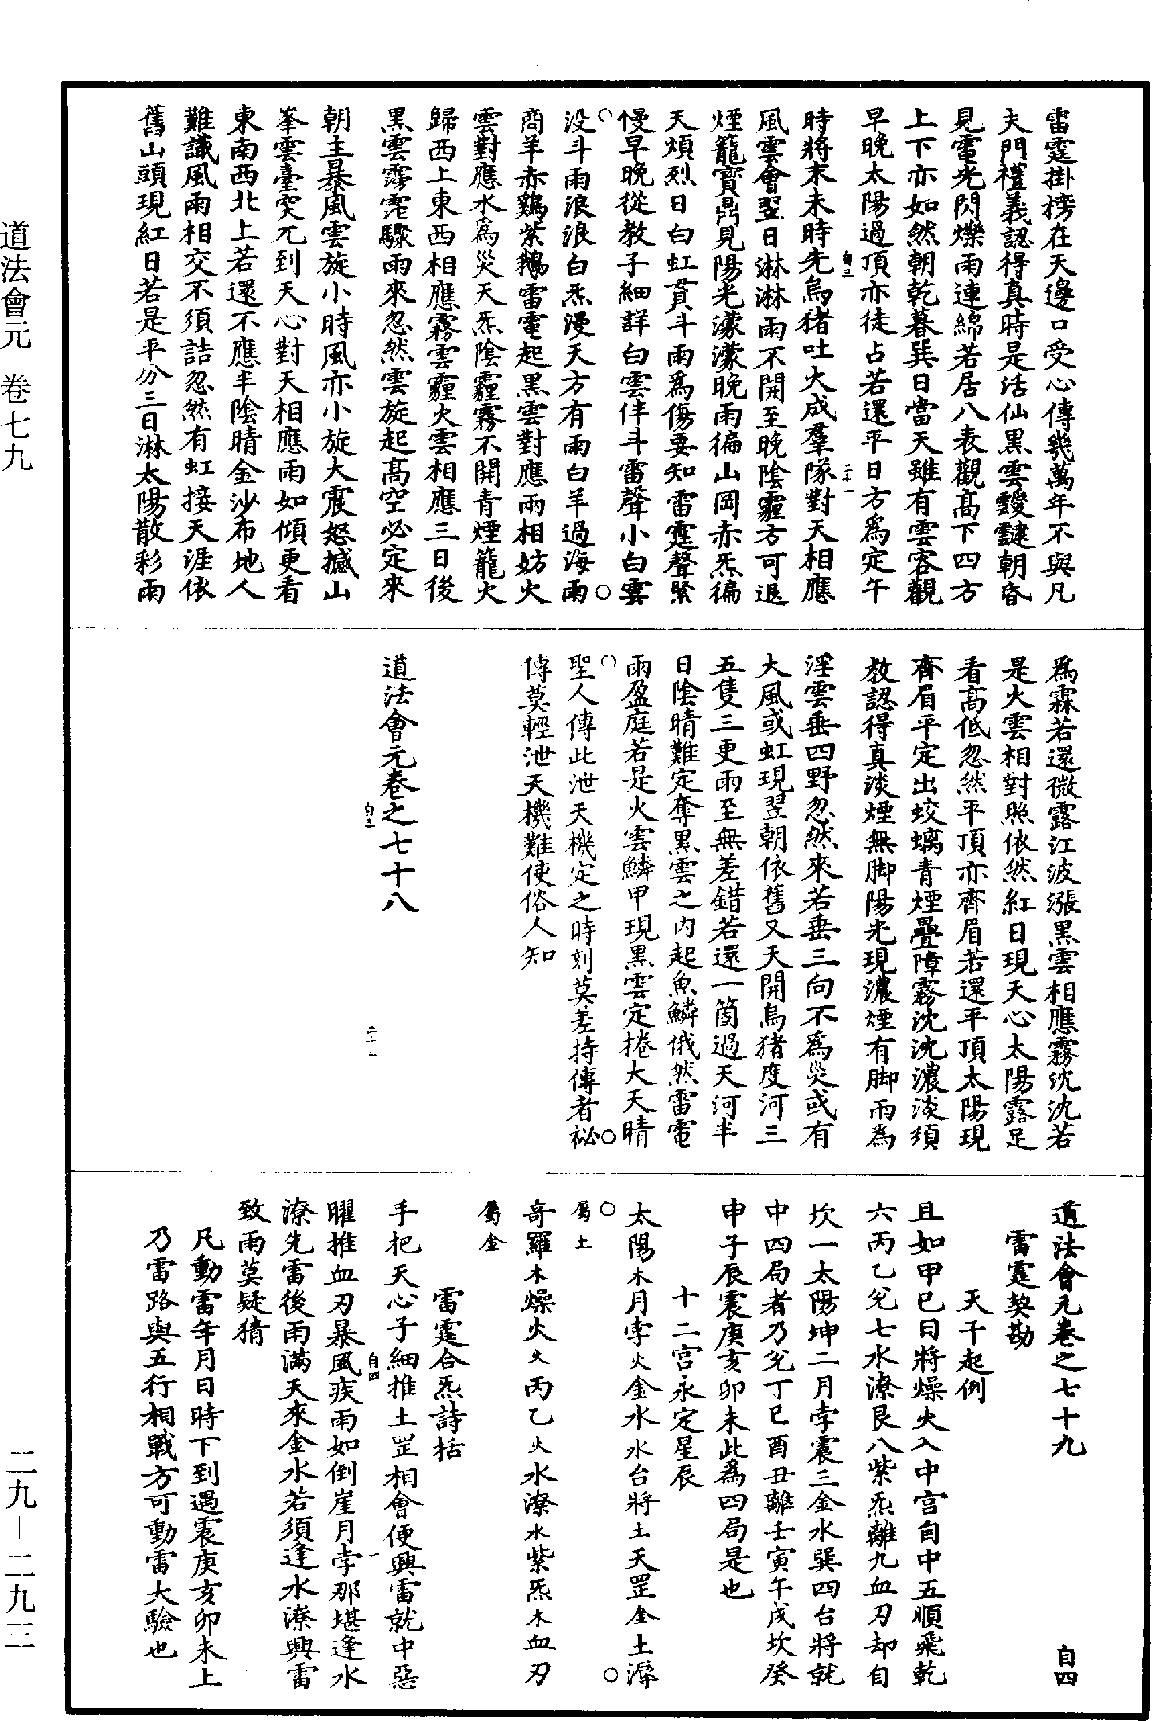 雷霆掛榜在天邊口受心傳幾萬年不與凡
夫門禮義認得真時是活仙黑雲靉靆朝昏
見電光閃爍雨連綿若居八表觀高下四方
上下亦如然朝乾暮巽日當天雖有雲容觀
早晚太陽過頂亦徒占若還平日方為定午
時將末未時先烏猪吐大成羣隊對天相應
風雲會翌日淋淋雨不開至晚陰霾方可退
煙籠寶鼎見陽光濛濛晚雨徧山岡赤炁徧
天煩烈日白虹貫斗雨為傷要知雷霆聲緊
慢早晚從教子細詳白雲伴斗雷聲小白雲
没斗雨浪浪白炁漫天方有雨白羊過海雨
商羊赤鷄紫鵝雷電起黑雲對應雨相妨火
雲對應水為災天炁陰霾霧不開青煙籠火
歸西上東西相應霧雲霾火雲相應三日後
黑雲霶霈驟雨來忽然雲旋起高空必定來
朝主暴風雲旋小時風亦小旋大震怒撼山
峯雲臺突兀到天心對天相應雨如傾更看
東南西北上若還不應半陰晴金沙布地人
難識風雨相交不須詰忽然有虹接天涯依
舊山頭現紅日若是平分三日淋太陽散彩雨
為霖若還微露江波漲黑雲相應霧沈沈若
是火雲相對照依然紅日現天心太陽露足
看高低忽然平頂亦齊眉若還平頂太陽現
齊眉平定出蛟螭青煙疊障霧沈沈濃淡須
教認得真淡煙無脚陽光現濃煙有脚雨為
淫雲垂四野忽然來若垂三向不為災或有
大風或虹現翌朝依舊又天開烏猪度河三
五隻三更雨至無差錯若還一箇過天河半
日陰晴難定奪黑雲之内起魚鱗俄然雷電
雨盈庭若是火雲鱗甲現黑雲定捲大天晴
聖人傳此泄天機定之時刻莫差持傳者祕
傳莫輕泄天機難使俗人知
道法會元卷之七十八
道法會元卷之七十九
自四
雷霆契勘
天干起例
且如甲巳日將燥火入中宫自中五順飛乾
六丙乙兌七水潦艮八紫炁離九血刃却自
坎一太陽坤二月孛震三金水巽四台將就
中四局者乃兌丁巳酉丑離壬寅午戌坎癸
申子辰震庚亥卯未此為四局是也
十二宫永定星辰
太陽木月孛火金水水台將土天罡金土溽
屬土
奇羅木燥火火丙乙火水潦水紫炁木血刃
屬金
雷霆合炁詩括
手把天心子細推土罡相會便興雷就中惡
曜推血刃暴風疾雨如倒崖月孛那堪逢水
潦先雷後雨滿天來金水若須逢水潦興雷
致雨莫疑猜
凡動雷年月日時下到遇震庚亥卯未上
乃雷路與五行相戰方可動雷大驗也
道法會元 卷七九
二九—二九三